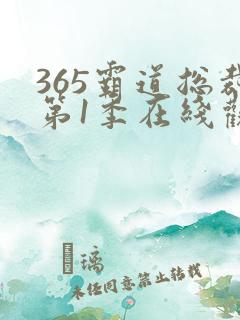 365霸道总裁
第1季在线观
璃
未经同意禁止转载